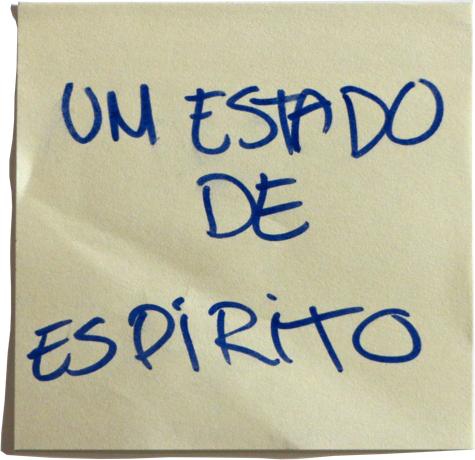 UM ESTADO
DE
ESPíRiTO